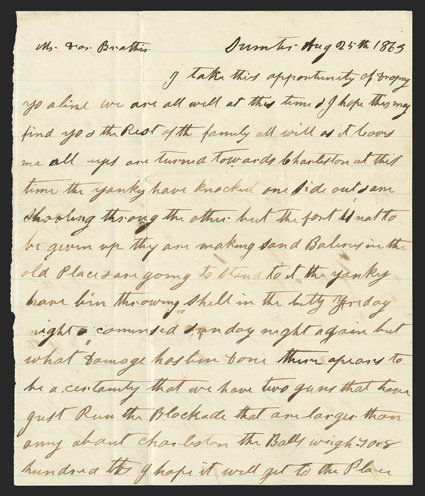 Sumter Aug 25th 1863
I take this oppertunity of droping
yo a line we are all well at this time & I hope this may
find yo & the Rest of the family all well as it leavs
me all eys are turned towards Charleston at this
time the yanky have knocked one side out & are
Shooting throug the other but the fort is not to
be given up thy are making sand in the
old Place & are going to stend to it the yanky
have bin throwing shell in the citty Fryday
night & comensed sunday night again but
what damage has bin done there apears to
be a certainty that we have two guns that have
just Run the Blockade that are larger than
anny about charleston the Balls weigh 7 or 8
hundred lbs I hope it will get to the Place